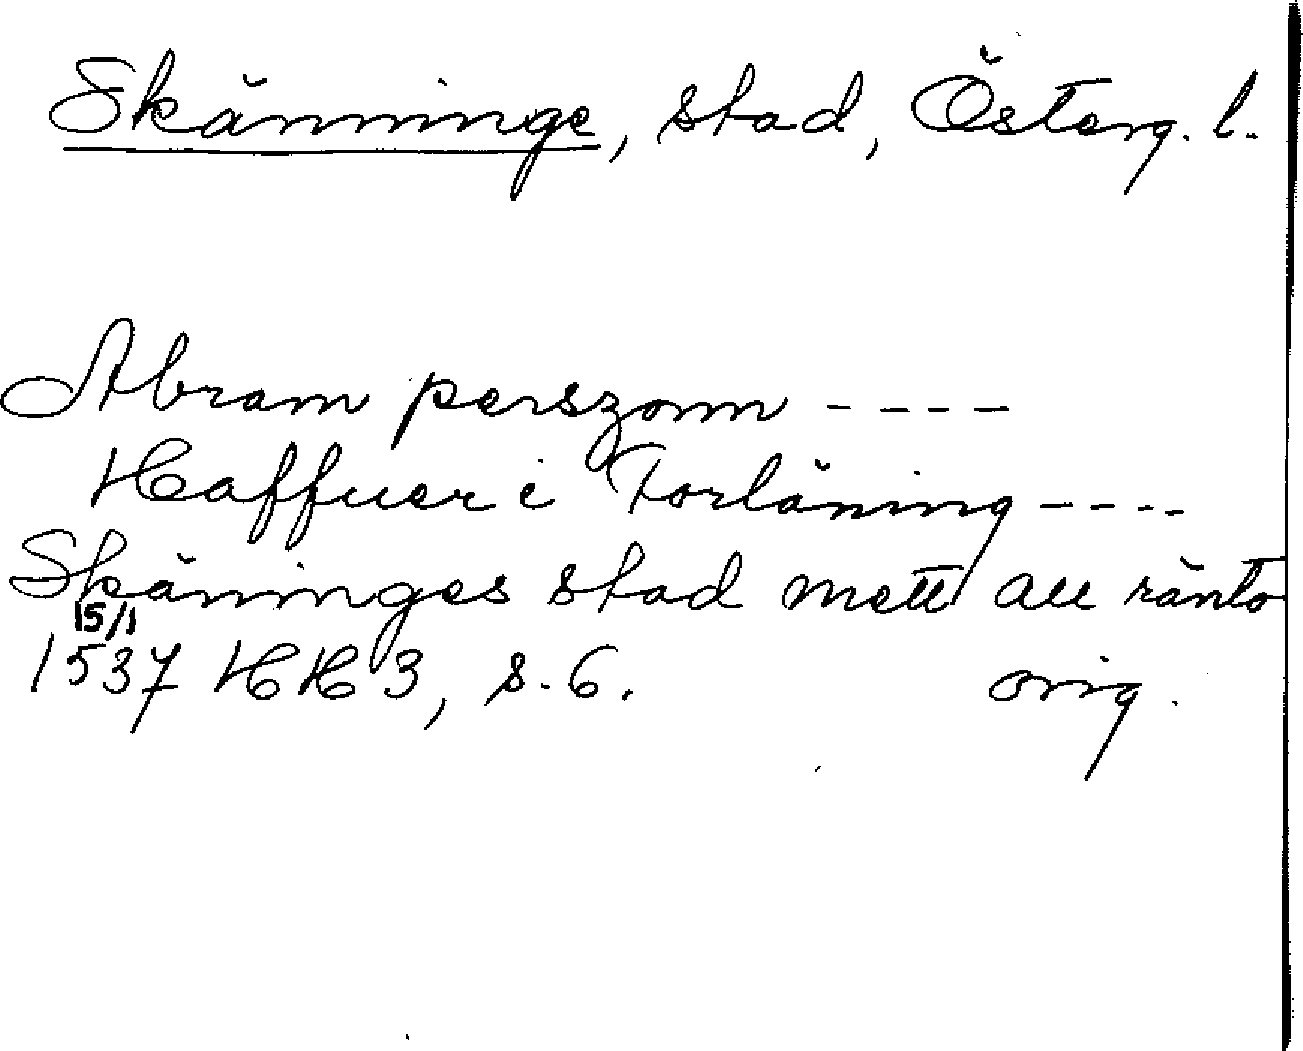 Skänninge, stad, Österg. l.
Abram perszonn ----
Haffuer i Forläning ----
Skäninges stad mett all ränto
15/1
1537 HH 3, s. 6. orig.